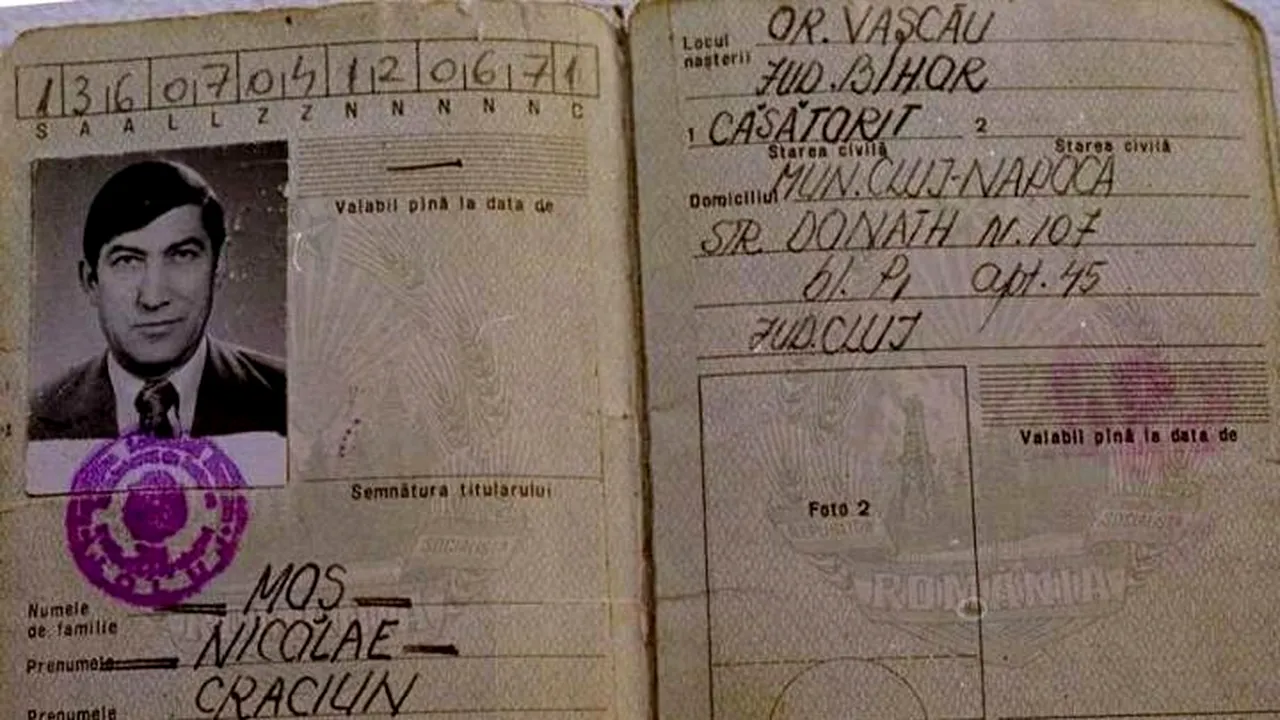 1 3 6 0 7 0 4 1 2 0 6 7 1
S A A L L Z Z N N N N N C
Valabil pînă la data de
Semnătura titularului
SOCIALISTA
Numele
de familie
MOȘ
Prenumele
NICOLAE
Prenumele
CRACIUN
Locul
nașterii
OR. VAȘCĂU
JUD. BIHOR
1 CĂSĂTORIT 2
Starea civilă Starea civilă
Domiciliul MUN. CLUJ-NAPOCA
STR. DONATH N. 107
bl. P1 apt. 45
JUD. CLUJ
Valabil pînă la data de
Foto 2
SOCIALISTA
ROMÂNIA